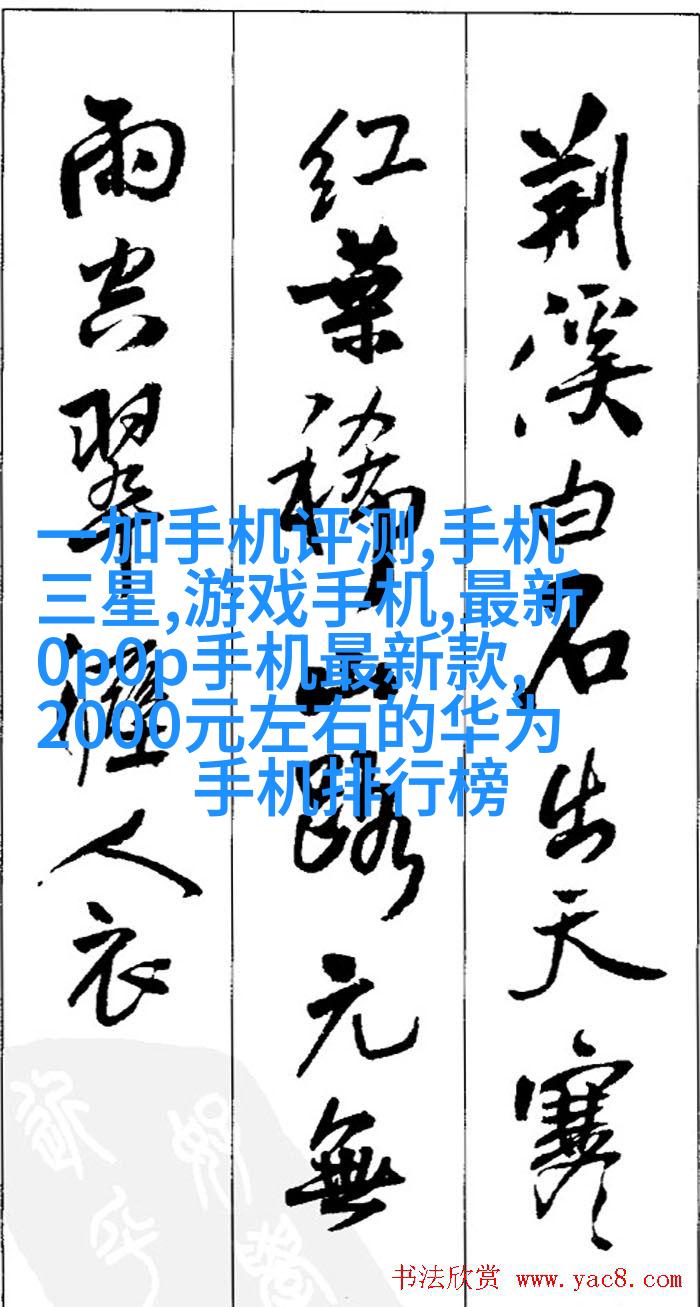 荆溪白石出天寒
红葉稀山路元無
雨空翠濕人衣
一加手机评测,手机
三星,游戏手机,最新
0p0p手机最新款,
2000元左右的华为
手机排行榜
书法欣赏 www.yac8.com